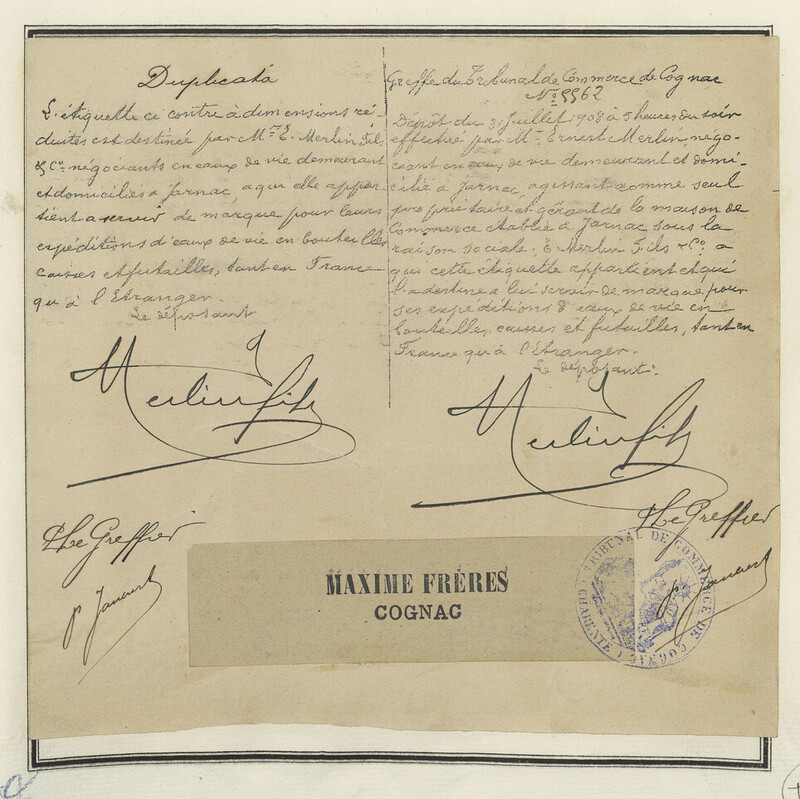 Duplicata
L'étiquette ci contre à dimensions ré-
duites est destinée par Mrs E. Merlin Fils
& Co. négociants en eaux de vie demeurant
et domiciliés à Jarnac, a qui elle appar-
tient a servir de marque pour leurs
expéditions d'eaux de vie en bouteilles
caisses et futailles, tant en France
qu'à l'Etranger.
Le déposant
Merlin fils
Le Greffier
Greffe du Tribunal de Commerce de Cognac
No 5562
Dépôt du 31 Juillet 1908 à 5 heures du soir
effectué par Mr. Ernest Merlin, négo-
ciant en eaux de vie demeurant et domi-
cilié à Jarnac, agissant comme seul
propriétaire et gérant de la maison de
Commerce établie à Jarnac sous la
raison sociale; E. Merlin Fils & Co. a
qui cette étiquette appartient et qui
l'a destine a lui servir de marque pour
ses expéditions d'eaux de vie en
bouteilles, caisses et futailles, tant en
France qu'à l'Etranger.
Le déposant.
Merlin fils
Le Greffier
MAXIME FRÈRES
COGNAC
TRIBUNAL DE COMMERCE DE COGNAC
CHARENTE